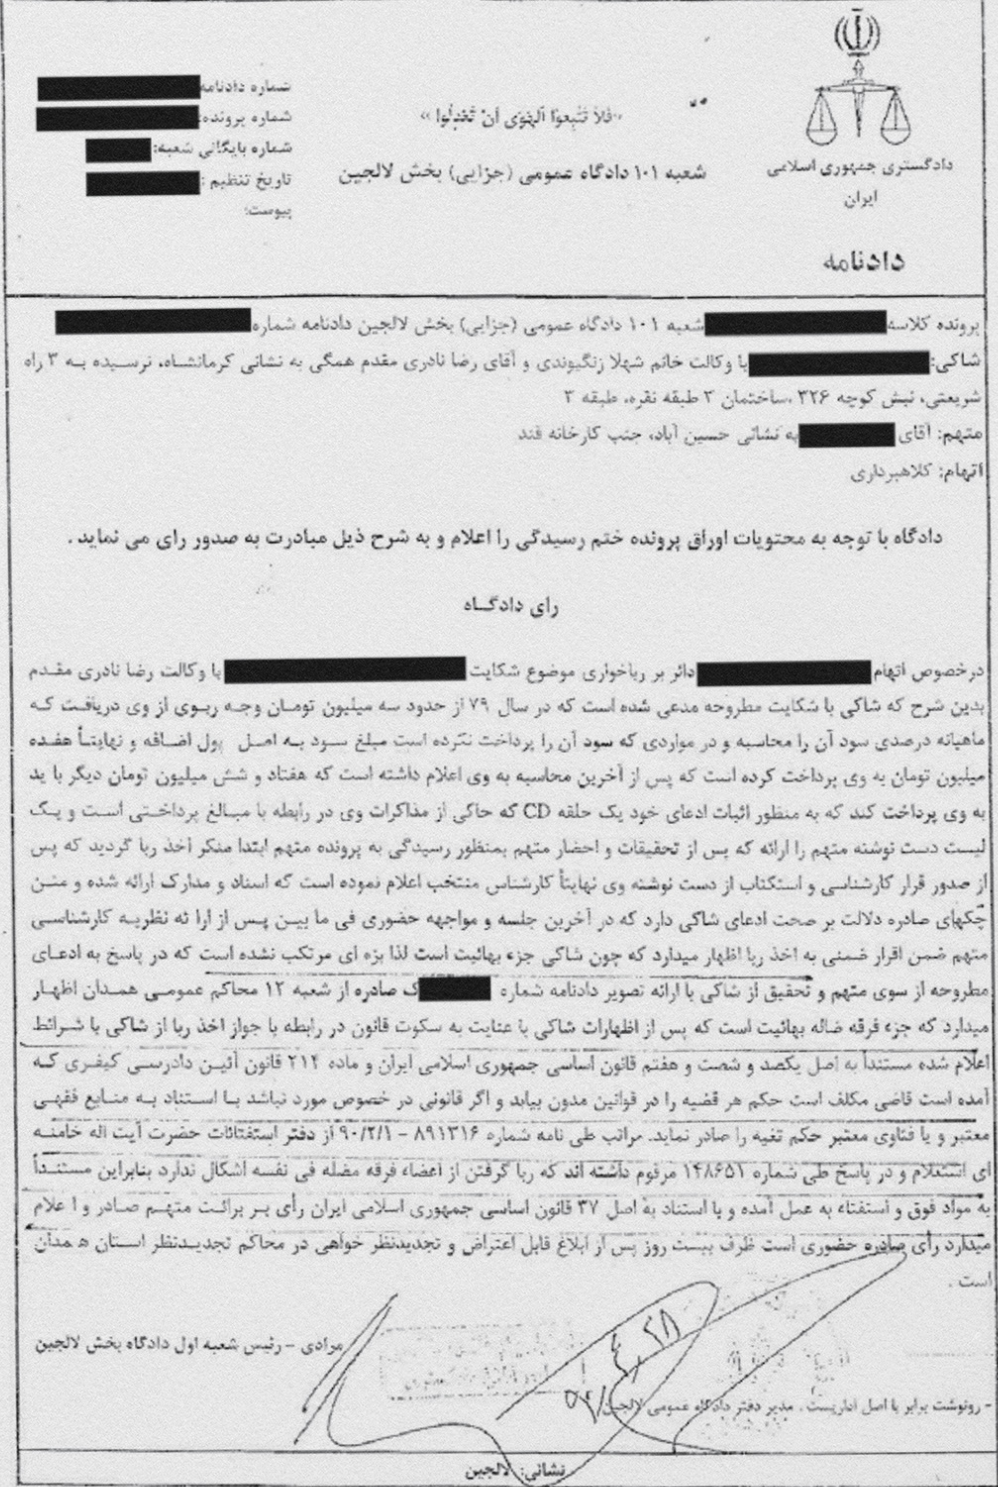 دادگستری جمهوری اسلامی
ایران
دادنامه
«فلا تتبعوا الهوی ان تعدلوا»
شعبه ۱۰۱ دادگاه عمومی (جزایی) بخش لالجین
شماره دادنامه
شماره پرونده:
شماره بایگانی شعبه:
تاریخ تنظیم :
پیوست:
پرونده کلاسه شعبه ۱۰۱ دادگاه عمومی (جزایی) بخش لالجین دادنامه شماره
شاکی: با وکالت خانم شهلا زنگیوندی و آقای رضا نادری مقدم همگی به نشانی کرمانشاه، نرسیده به ۳ راه
شریعتی، نبش کوچه ۳۲۶ ،ساختمان ۳ طبقه نقره، طبقه ۳
متهم: آقای به نشانی حسین آباد، جنب کارخانه قند
اتهام: کلاهبرداری
دادگاه با توجه به محتویات اوراق پرونده ختم رسیدگی را اعلام و به شرح ذیل مبادرت به صدور رای می نماید .
رای دادگـاه
درخصوص اتهام دائر بر رباخواری موضوع شکایت با وکالت رضا نادری مقدم
بدین شرح که شاکی با شکایت مطروحه مدعی شده است که در سال ۷۹ از حدود سه میلیون تومان وجه ربوی از وی دریافت که
ماهیانه درصدی سود آن را محاسبه و در مواردی که سود آن را پرداخت نکرده است مبلغ سود به اصل پول اضافه و نهایتاً هفده
میلیون تومان به وی پرداخت کرده است که پس از آخرین محاسبه به وی اعلام داشته است که هفتاد و شش میلیون تومان دیگر با ید
به وی پرداخت کند که به منظور اثبات ادعای خود یک حلقه CD که حاکی از مذاکرات وی در رابطه با مبالغ پرداختی است و یک
لیست دست نوشته متهم را ارائه که پس از تحقیقات و احضار متهم بمنظور رسیدگی به پرونده متهم ابتدا منکر اخذ ربا گردید که پس
از صدور قرار کارشناسی و استکتاب از دست نوشته وی نهایتاً کارشناس منتخب اعلام نموده است که اسناد و مدارک ارائه شده و متن
چکهای صادره دلالت بر صحت ادعای شاکی دارد که در آخرین جلسه و مواجهه حضوری فی ما بین پس از ارا ئه نظریه کارشناسی
متهم ضمن اقرار ضمنی به اخذ ربا اظهار میدارد که چون شاکی جزء بهائیت است لذا بزه ای مرتکب نشده است که در پاسخ به ادعای
مطروحه از سوی متهم و تحقیق از شاکی با ارائه تصویر دادنامه شماره ک صادره از شعبه ۱۲ محاکم عمومی همدان اظهار
میدارد که جزء فرقه ضاله بهائیت است که پس از اظهارات شاکی با عنایت به سکوت قانون در رابطه با جواز اخذ ربا از شاکی با شرائط
اعلام شده مستنداً به اصل یکصد و شصت و هفتم قانون اساسی جمهوری اسلامی ایران و ماده ۲۱۴ قانون آئین دادرسی کیفری که
آمده است قاضی مکلف است حکم هر قضیه را در قوانین مدون بیابد و اگر قانونی در خصوص مورد نباشد با استناد به منابع فقهی
معتبر و یا فتاوی معتبر حکم تغیه را صادر نماید. مراتب طی نامه شماره ۸۹۱۳۱۶ – ۹۰/۲/۱ از دفتر استفتائات حضرت آیت اله خامنه
ای استعلام و در پاسخ طی شماره ۱۴۸۶۵۱ مرقوم داشته اند که ربا گرفتن از اعضاء فرقه مضله فی نفسه اشکال ندارد بنابراین مستنداً
به مواد فوق و استفتاء به عمل آمده و با استناد به اصل ۳۷ قانون اساسی جمهوری اسلامی ایران رأی بر برائت متهم صادر و ا علام
میدارد رأی صادره حضوری است ظرف بیست روز پس از ابلاغ قابل اعتراض و تجدیدنظر خواهی در محاکم تجدیدنظر استان ه مدان
است .
مرادی – رئیس شعبه اول دادگاه بخش لالجین
- رونوشت برابر با اصل اداریست . مدیر دفتر دادگاه عمومی لالجین
نشانی: لالجین